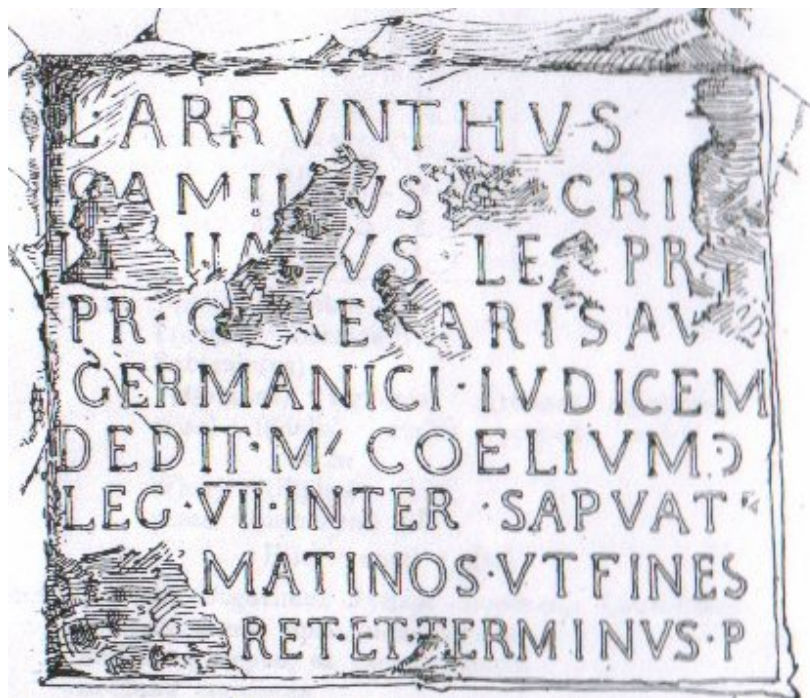 L·ARRVNTHVS
CRI
LEG PR
PR· ARIS AV
GERMANICI·IVDICEM
DEDIT·M' COELIVM Ɔ
LEG·VII·INTER·SAPVAT
MATINOS·VT FINES
RET·ET·TERMINVS·P